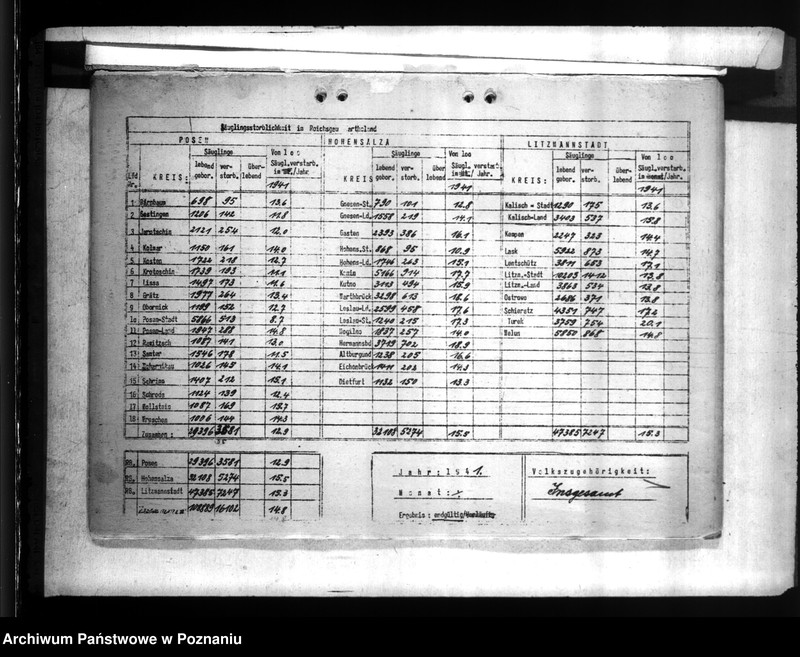 Säuglingssterblichkeit im Reichsgau artheland
POSEN HOHENSALZA LITZMANNSTADT
Lfd Nr. KREIS: Säuglinge lebend gebor. ver- storb. über- lebend Von 100 Säugl.verstarb. im /Jahr. 1941
KREIS Säuglinge lebend gebor. ver- storb. über lebend Von 100 Säugl. verstarb. im /Jahr. 1941
KREIS: Säuglinge lebend gebor. ver- storb. über- lebend Von 100 Säugl.verstarb. im /Jahr. 1941
1 Birnbaum 698 95 13.6 Gnesen-St. 790 101 12.8 Kalisch - Stadt 1290 175 13.6
2 Gostingen 1206 142 11.8 Gnesen-Ld. 1558 219 14.1 Kalisch-Land 3403 537 15.8
3 Jarotschin 2121 254 12.0 Gasten 2393 386 16.1 Kempen 2247 323 14.4
4 Kolmar 1150 161 14.0 Hohens.St. 868 95 10.9 Lask 5922 873 14.7
5 Kosten 1722 218 12.7 Hohens-Ld. 1746 263 15.1 Lentschütz 3811 653 17.1
6 Krotoschin 1739 193 11.1 Konin 5166 914 17.7 Litzm.-Stadt 10203 1412 13.8
7 Lissa 1497 173 11.6 Kutno 3113 494 15.9 Litzm.-Land 3863 534 13.8
8 Grätz 1977 264 13.4 Warthbrück. 3298 613 18.6 Ostrowo 2686 371 13.8
9 Obornick 1199 152 12.7 Leslau-Ld. 2599 458 17.6 Schieratz 4351 747 17.2
10 Posen-Stadt 5866 513 8.7 Leslau-St. 1240 215 17.3 Turek 3759 754 20.1
11 Posen-Land 1947 288 14.8 Mogilno 1837 257 14.0 Welun 5850 868 14.8
12 Rawitsch 1087 141 13.0 Hermannsbd 3719 702 18.9
13 Samter 1546 178 11.5 Altburgund 1238 205 16.6
14 Scharnikau 1026 145 14.1 Eichenbrück 1411 202 14.3
15 Schrimm 1407 212 15.1 Dietfurt 1132 150 13.3
16 Schroda 1124 139 12.4
17 Wollstein 1087 169 15.7
18 Wreschen 1006 144 14.3
Zusammen : 29396 3581 12.9 32108 5274 15.5 47385 7247 15.3
RB. Posen 29396 3581 12.9
RB. Hohensalza 32108 5274 15.5
RB. Litzmannstadt 47385 7247 15.3
108889 16102 14.8
Jahr: 1941.
Monat:
Ergebnis: endgültig/Vorläufig
Volkszugehörigkeit:
Insgesamt
Archiwum Państwowe w Poznaniu